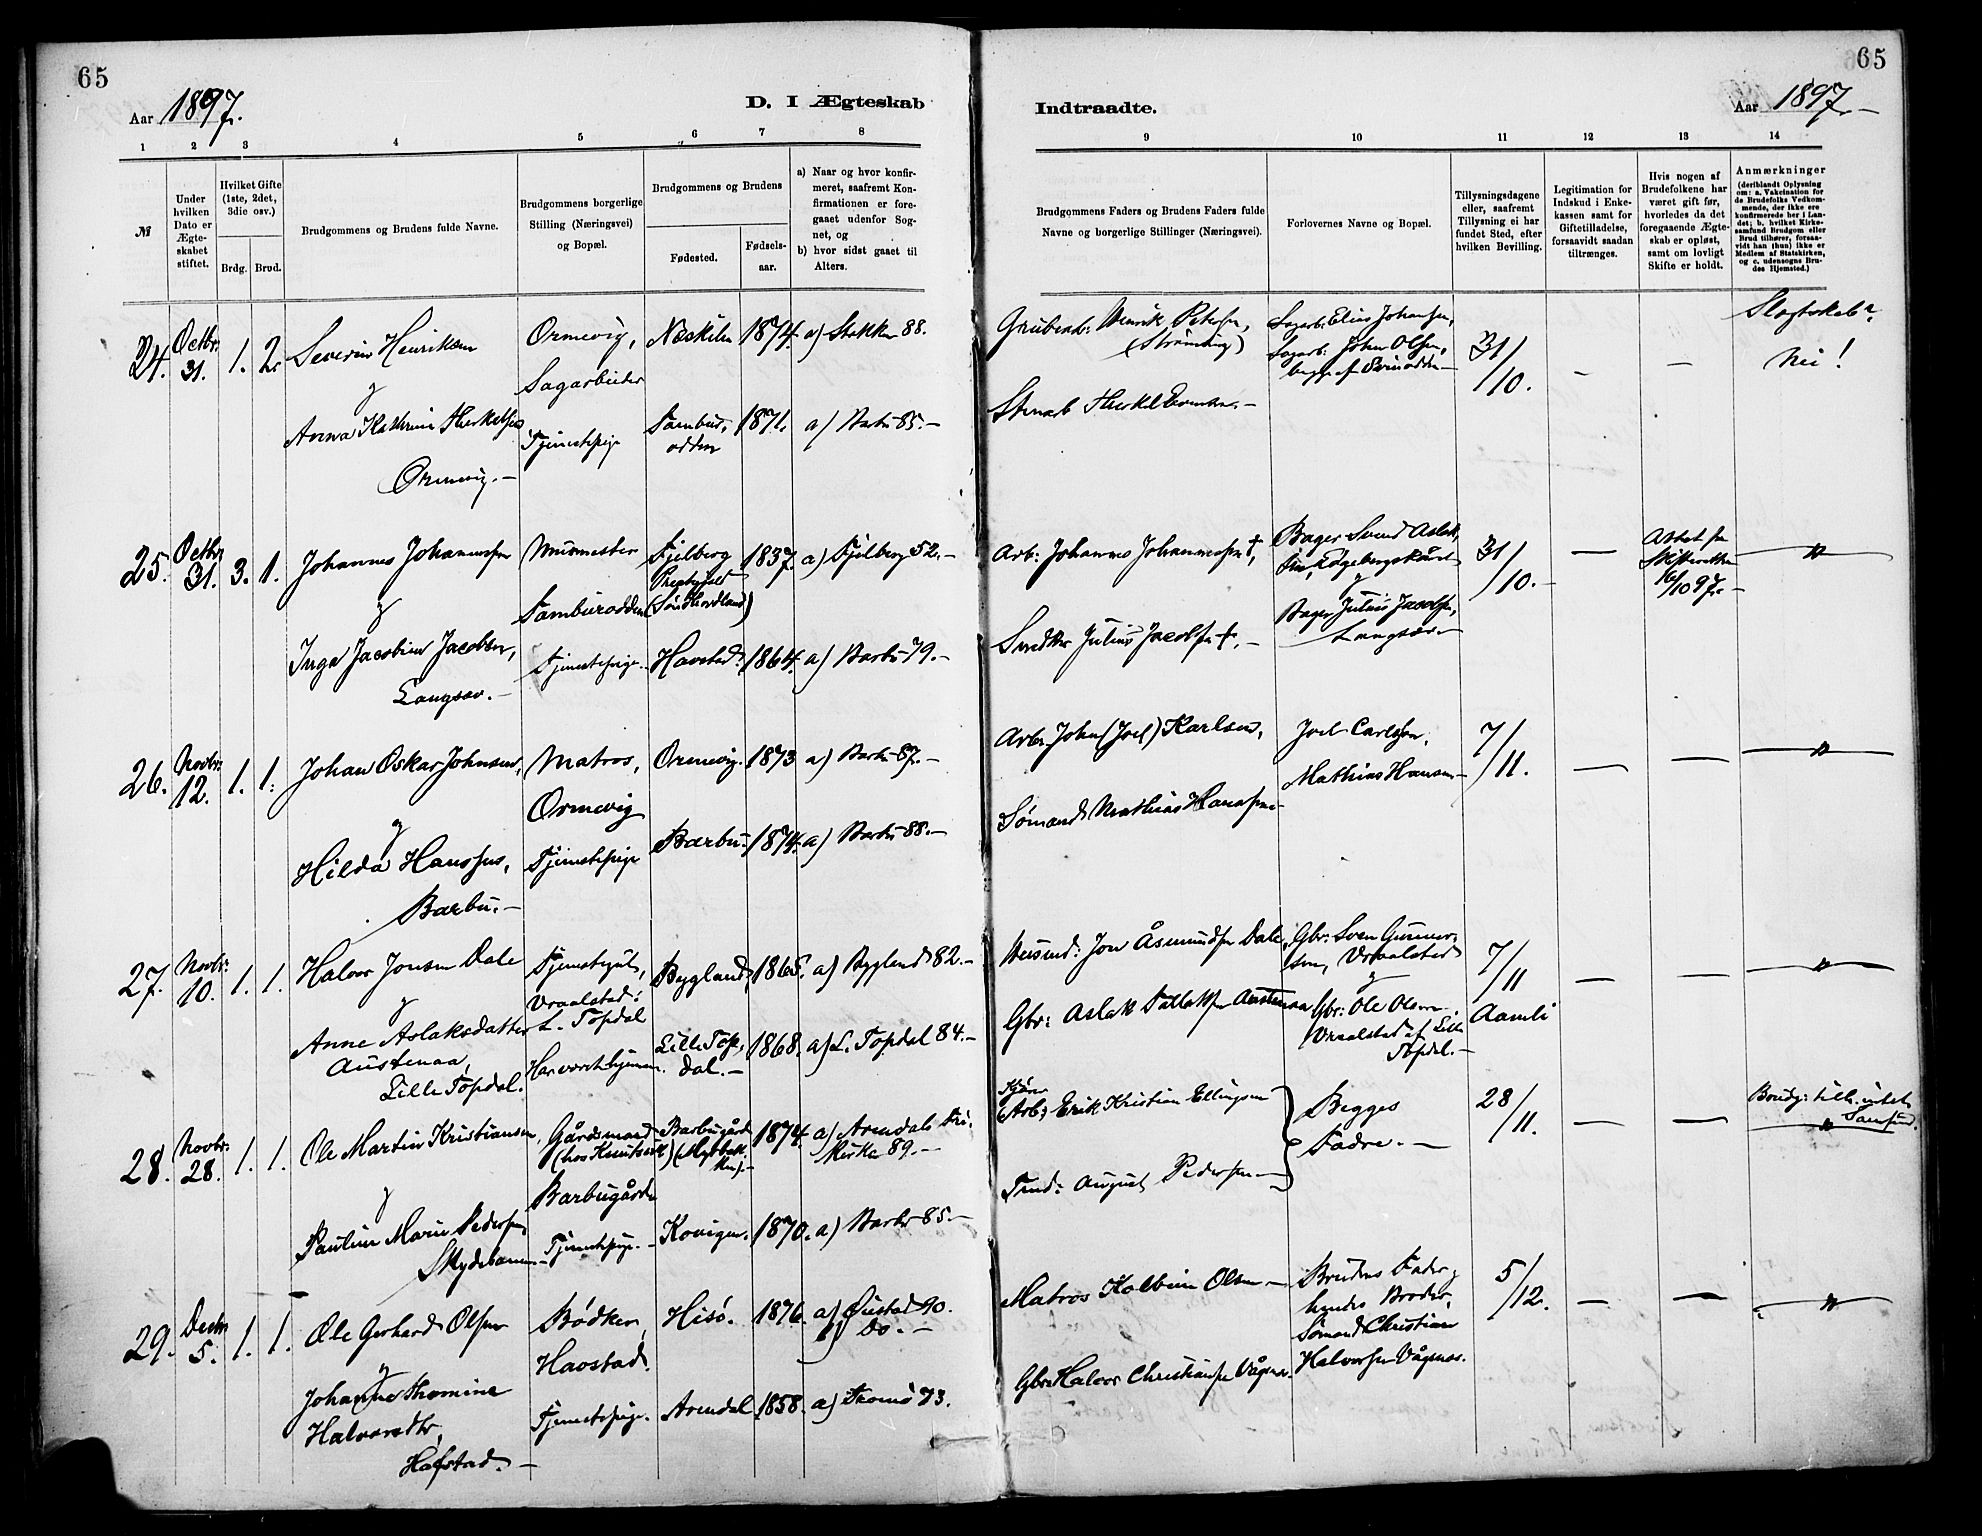 65
65
Aar 1897.
D. I Ægteskab
Indtraadte.
Aar 1897.—
1 2 3 4 5 6 7 8
9 10 11 12 13 14
№
Under hvilken Dato er Ægteskabet stiftet.
Hvilket Gifte (1ste, 2det, 3die osv.)
Brdg. Brud.
Brudgommens og Brudens fulde Navne.
Brudgommens borgerlige Stilling (Næringsvei) og Bopæl.
Brudgommens og Brudens
Fødested.
Fødsels-aar.
a) Naar og hvor konfirmeret, saafremt Konfirmationen er foregaaet udenfor Sognet, og
b) hvor sidst gaaet til Alters.
Brudgommens Faders og Brudens Faders fulde Navne og borgerlige Stillinger (Næringsvei).
Forlovernes Navne og Bopæl.
Tillysningsdagene eller, saafremt Tillysning ei har fundet Sted, efter hvilken Bevilling.
Legitimation for Indskud i Enkekassen samt for Giftetilladelse, forsaavidt saadan tiltrænges.
Hvis nogen af Brudefolkene har været gift før, hvorledes da det foregaaende Ægteskab er opløst, samt om lovligt Skifte er holdt.
Anmærkninger
(deriblandt Oplysning om: a. Vakcination for de Brudefolks Vedkommende, der ikke ere konfirmerede her i Landet; b. hvilket Kirkesamfund Brudgom eller Brud tilhører, forsaavidt han (hun) ikke er Medlem af Statskirken, og c. udensogns Brudes Hjemsted.)
24. Octbr. 31. 1. 2.
Severin Henriksen
Ormevig, Sagarbeider
Næskilen 1874. a) Stokken 88.
Henrik Petersen,
Sagarb: Elias Johansen,
Sagarb: John Olsen,
31/10. — —
Slægtskab?
Nei!
og
Anna Kathrine
Ormevig.—
Tjenestepige
odden 1871. a) Barbu 85.—
25. Octbr 31. 3. 1.
Johannes Johannessen
Murmester
Fjelberg Prestegjeld (Sønd Hordland) 1837. a) Fjelberg 52.—
Arb: Johannes Johannessen †,
Bager Svend
31/10.— —
Skifteretten 16/10 97.—
"
og
Inga Jacobine Jacobsen,
Langsæv.—
Tjenestepige.
Havstad. 1864. a) Barbu 79.—
Julius Jacobsen †.—
Bager Julius Jacobsen,
26. Novbr: 12. 1. 1.
Johan Oskar Johnsen,
Matros, Ormevig
Ormevig. 1873 a) Barbu 87.—
Arb. John (Joel) Karlsen,
Joel Carlsen,
7/11. — —
"
og
Hilda Hansen,
Barbu.—
Tjenestepige
Barbu. 1874. a) Barbu 88.—
Sømand Mathias Hansen
Mathias Hansen—
27. Novbr: 10. 1. 1.
Halvor Jonsen Dale
Tjenestegut, Vraalstad: L. Topdal
Bygland, 1865. a) Bygland 82.—
Husmd: Jon Åsmundsen Dale,
Gbr: Sven Gunnersen, Vraalstad
7/11 Aamli — —
"
og
Anne Aslaksdatter
Austenaa,
Lille Topdal.
Lille Topdal.— 1868. a) L. Topdal 84.—
Gbr: Aslak Tallaksen Austenaa
Gbr: Ole Olsen Vraalstad af Lille Topdal.—
28. Novbr: 28. 1. 1.
Ole Martin Kristiansen,
Gårdsmand
Barbugård
Barbugård 1874. a) Arendals 89.—
(Arb:) Erik Kristian Ellingsen
Begges Fadre.—
28/11. — —
og
Pauline Marie Pedersen,
Skydebanen—
Tjenestepige.—
1870. a) Barbu 85.—
August Pedersen—
29. Decbr 5. 1. 1.
Ole Gerhard Olsen
Bødker, Havstad.
Hisø. 1876. a) Øiestad 90.
b) do.—
Matros Kolbein Olsen—
Brudens Fader og
hendes Broder,
Sømand Christian
Halvorsen Vågsnes.
5/12. — —
"
og
Johanne Thomine
Halvorsdtr,
Hafstad.—
Tjenestepige.
Arendal 1858. a) Tromø 73.
Gbr. Halvor Christiansen Vågsnes.